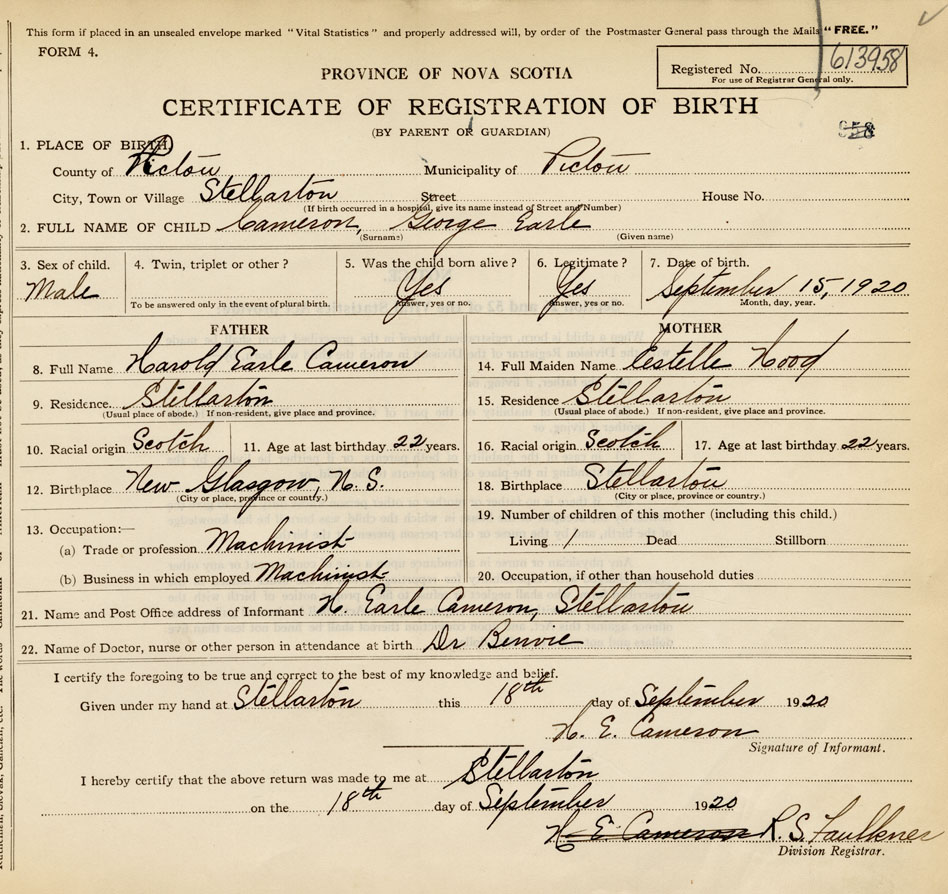 This form if placed in an unsealed envelope marked "Vital Statistics" and properly addressed will, by order of the Postmaster General pass through the Mails "FREE."
FORM 4.
Registered No. 613958
For use of Registrar General only.
PROVINCE OF NOVA SCOTIA
CERTIFICATE OF REGISTRATION OF BIRTH
(BY PARENT OR GUARDIAN)
958
1. PLACE OF BIRTH
County of Pictou Municipality of Pictou
City, Town or Village Stellarton Street House No.
(If birth occurred in a hospital, give its name instead of Street and Number)
2. FULL NAME OF CHILD Cameron, George Earle
(Surname) (Given name)
3. Sex of child. 4. Twin, triplet or other? 5. Was the child born alive? 6. Legitimate? 7. Date of birth.
Male Yes Yes September 15, 1920
To be answered only in the event of plural birth. Answer, yes or no. Answer, yes or no. Month, day, year.
FATHER
8. Full Name Harold Earle Cameron
9. Residence. Stellarton
(Usual place of abode.) If non-resident, give place and province.
10. Racial origin Scotch 11. Age at last birthday 22 years.
12. Birthplace New Glasgow, N.S.
(City or place, province or country.)
13. Occupation:—
(a) Trade or profession Machinist
(b) Business in which employed Machinist
MOTHER
14. Full Maiden Name Estelle Hood
15. Residence Stellarton
(Usual place of abode.) If non-resident, give place and province.
16. Racial origin Scotch 17. Age at last birthday 22 years.
18. Birthplace Stellarton
(City or place, province or country.)
19. Number of children of this mother (including this child.)
Living 1 Dead Stillborn
20. Occupation, if other than household duties
21. Name and Post Office address of Informant H. Earle Cameron, Stellarton
22. Name of Doctor, nurse or other person in attendance at birth Dr Benvie
I certify the foregoing to be true and correct to the best of my knowledge and belief.
Given under my hand at Stellarton this 18th day of September 1920
H. E. Cameron
Signature of Informant.
I hereby certify that the above return was made to me at Stellarton
on the 18th day of September 1920
H. E. Cameron R. S. Faulkner
Division Registrar.